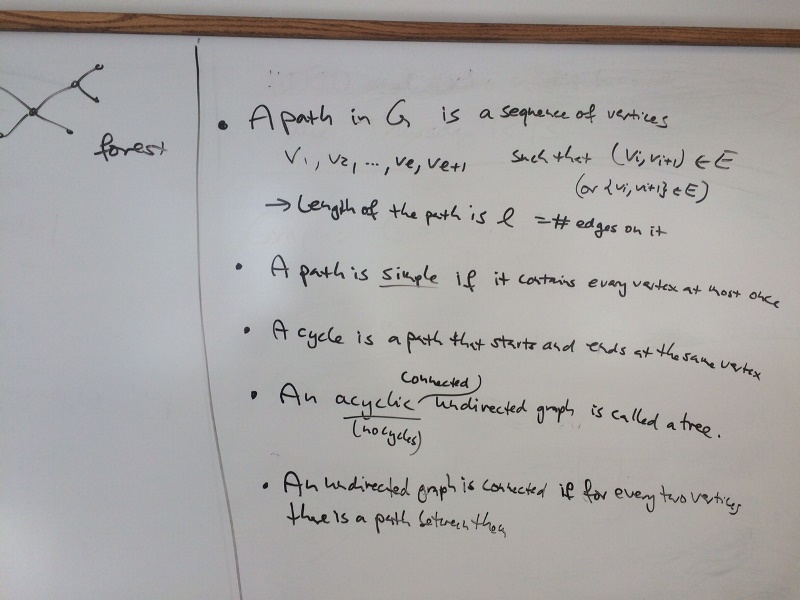 forest
• A path in G is a sequence of vertices
v1, v2, ..., vℓ, vℓ+1 such that (vi, vi+1) ∈ E
(or {vi, vi+1} ∈ E)
→ Length of the path is ℓ = # edges on it
• A path is simple if it contains every vertex at most once
• A cycle is a path that starts and ends at the same vertex
connected
• An acyclic undirected graph is called a tree.
(no cycles)
• An undirected graph is connected if for every two vertices
there is a path between them